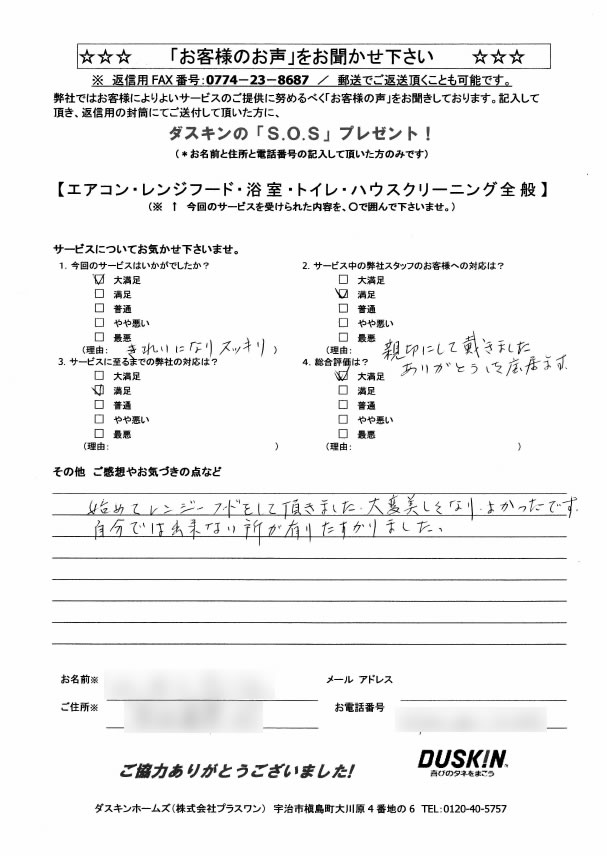 ☆☆☆ 「お客様のお声」をお聞かせ下さい ☆☆☆
※ 返信用FAX番号:0774-23-8687 / 郵送でご返送頂くことも可能です。
弊社ではお客様によりよいサービスのご提供に努めるべく「お客様の声」をお聞きしております。記入して
頂き、返信用の封筒にてご送付して頂いた方に、
ダスキンの「S.O.S」プレゼント!
(*お名前と住所と電話番号の記入して頂いた方のみです)
【エアコン・レンジフード・浴室・トイレ・ハウスクリーニング全般】
(※ ↑ 今回のサービスを受けられた内容を、〇で囲んで下さいませ。)
サービスについてお気かせ下さいませ。
1. 今回のサービスはいかがでしたか?
☑ 大満足
□ 満足
□ 普通
□ やや悪い
□ 最悪
(理由: きれいになりスッキリ )
2. サービス中の弊社スタッフのお客様への対応は?
□ 大満足
☑ 満足
□ 普通
□ やや悪い
□ 最悪
(理由: 親切にして戴きました
ありがとう
3. サービスに至るまでの弊社の対応は?
□ 大満足
☑ 満足
□ 普通
□ やや悪い
□ 最悪
(理由: )
4. 総合評価は?
☑ 大満足
□ 満足
□ 普通
□ やや悪い
□ 最悪
(理由: )
その他 ご感想やお気づきの点など
始めてレンジーフードをして頂きました。大変美しくなり、よかったです。
自分では出来ない所が有りたすかりました。
お名前※
メール アドレス
ご住所※
お電話番号
ご協力ありがとうございました!
DUSKIN
喜びのタネをまこう
ダスキンホームズ(株式会社プラスワン) 宇治市槇島町大川原4番地の6 TEL:0120-40-5757